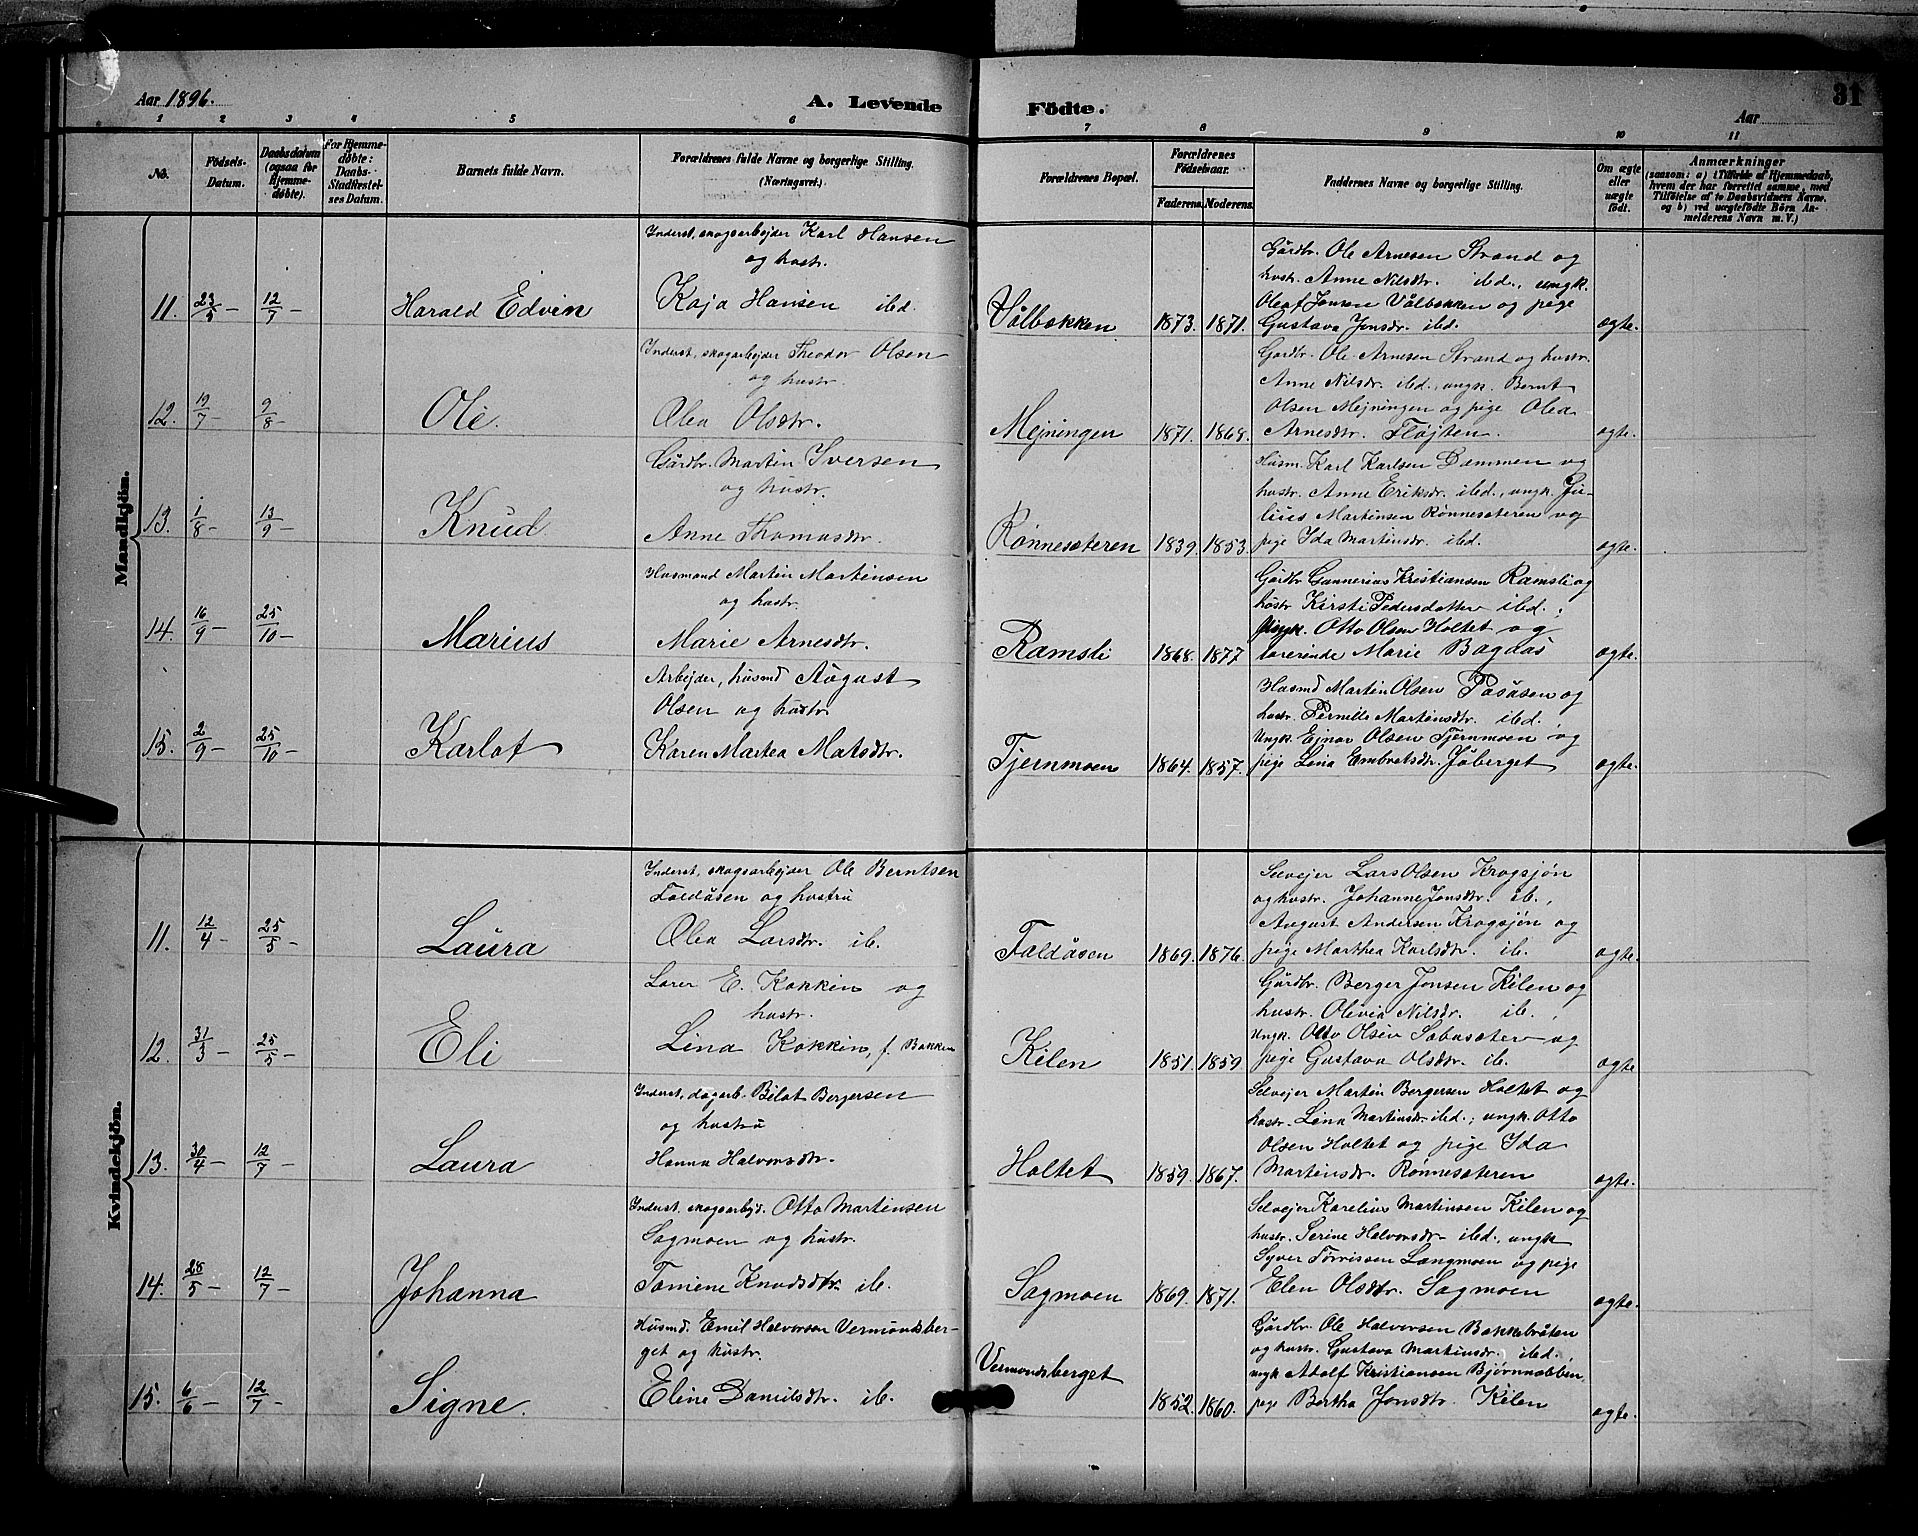 Aar 1896.
A. Levende Födte.
31
Aar
1 2 3 4 5 6 7 8 9 10 11
No.
Födsels-Datum.
Daabsdatum (ogsaa for Hjemme-døbte).
For Hjemme-døbte: Daabs-Stadfæstel-ses Datum.
Barnets fulde Navn.
Forældrenes fulde Navne og borgerlige Stilling. (Næringsvei.)
Forældrenes Bopæl.
Forældrenes Födselsaar.
Faderens. Moderens.
Faddernes Navne og borgerlige Stilling.
Om ægte eller uægte født.
Anmærkninger
(saasom: a) i Tilfælde af Hjemmedaab, hvem der har forrettet samme, med Tilføielse af to Daabsvidners Navne, og b) ved uægtefødte Börn An-melderens Navn m. V.)
Mandkjön.
Inderst, skogsarbejder Karl Hansen
og hustr.
11. 23/5 – 12/7 – Harald Edvin Kaja Hansen ibd. Vålbækken 1873. 1871.
Gårdbr. Ole Arnesen Strand og
hustr. Anne Nilsdtr. ibd., ungk.
Olaf Jonsen Vålbækken og pige
Gustava Jonsdr. ibd. ægte.
Inderst, skogarbejder Theodor Olsen
og hustr.
12. 19/7 – 9/8 – Ole. Olea Olsdtr. Mejningen 1871. 1868.
Gårdbr. Ole Arnesen Strand og hustr.
Anne Nilsdr. ibd., ungk. Bernt
Olsen Mejningen og pige Olea
Arnesdtr. Fløjten. ægte.
Gårdbr. Martin Iversen
og hustr.
13. 1/8 – 13/9 – Knud Anne Thomasdtr. Rønnesæteren 1839. 1853.
Husm. Karl Karlsen Dammen og
hustr. Anne Eriksdr. ibd., ungk. Ju-
lius Martinsen Rønnesæteren og
pige Ida Martinsdr. ibd. ægte.
Husmand Martin Martinsen
og hustr.
14. 16/9 – 25/10 – Marius Marie Arnesdtr. Ramsli 1868. 1877
Gårdbr Gunnerius Kristiansen Ramsli og
hustr Kirsti Pedersdatter ibd.;
ungk. Otto Olsen Holtet og
lærerinde Marie Bagaas ægte.
Arbejder, husmd August
Olsen og hustr.
15. 2/9 – 25/10 – Karlot Karen Martea Matsdtr. Tjernmoen 1864. 1857.
Husmd Martin Olsen Påsåsen og
hustr. Pernille Martinsdtr. ibd.
Ungk. Ejnar Olsen Tjernmoen og
pige Lina Embretsdr. Jøberget ægte.
Kvindekjön.
Inderst, skogsarbejder Ole Berntsen
Faldåsen og hustru
11. 12/4 – 25/5 – Laura Olea Larsdtr. ib. Faldåsen 1869. 1876.
Selvejer Lars Olsen Krogsjøn
og hustr. Johanne Jonsdtr. ib.,
August Andersen Krogsjøn og
pige Marthea Karlsdtr. ib. ægte.
Lærer E. Kokkin og
hustr.
12. 31/3 – 25/5 – Eli Lina Kokkin, f. Bakken Kilen 1851. 1859
Gårdbr. Berger Jonsen Kilen og
hustr. Olivia Nilsdr. ib.,
ungk. Otto Olsen Sæbusæter og
pige Gustava Olsdtr. ib. ægte
Inderst, dagarb. Bilat Bergersen
og hustru
13. 30/4 – 12/7 – Laura Hanna Halvorsdtr. Holtet 1859. 1867.
Selvejer Martin Bergersen Holtet og
hustr. Lina Martinsdtr. ibd.; ungk. Otto
Olsen Holtet og pige Ida
Martinsdr. Rønnesæteren ægte.
Inderst. skogsarbejd. Otto Martinsen
Sagmoen og hustr.
14. 28/5 – 12/7 – Johanna Tomine Knudsdtr. ib. Sagmoen 1869. 1871.
Selvejer Karelius Martinsen Kilen og
hustr. Serine Halvorsdr. ibd., ungk
Syver Torrissen Langmoen og pige
Elen Olsdtr. Sagmoen ægte.
Husmd. Emil Halvorsen Vermundsber-
get og hustr.
15. 6/6 – 12/7 – Signe. Eline Danielsdtr. ib. Vermundsberget 1852. 1860.
Gårdbr. Ole Halvorsen Bakkebråten
og hustr. Gustava Martinsdr. ibd.,
ungk Adolf Kristiansen Bjørnnabben,
pige Bertha Jonsdtr. Kilen ægte.